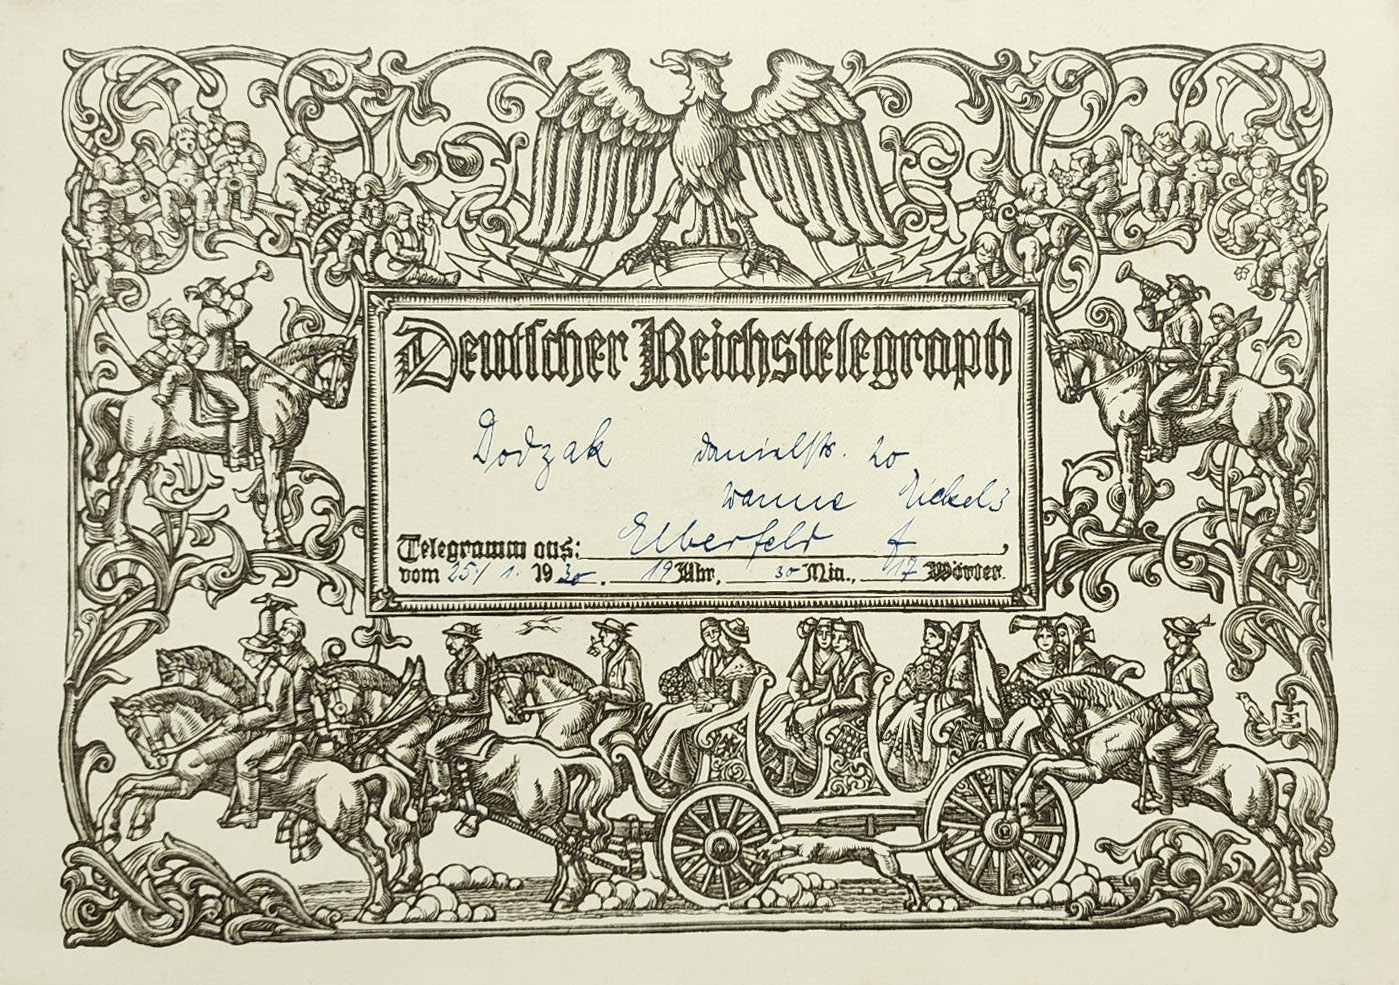 Deutscher Reichstelegraph
Dodzak Danielstr. 20
Wanne Eickel
Telegramm aus: Elberfeld
vom 25/ 1. 1930. 19 Uhr, 30 Min., 17 Wörter.